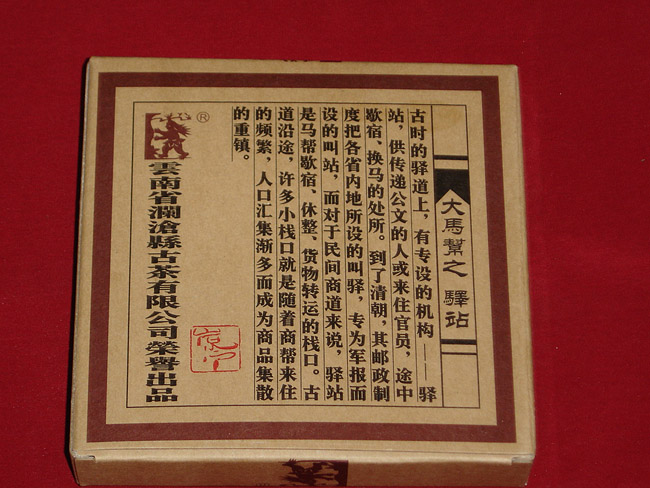 大馬幫之 驛站
古时的驿道上，有专设的机构——驿
站，供传递公文的人或来住官员，途中
歇宿、换马的处所。到了清朝，其邮政制
度把各省内地所设的叫驿，专为军报而
设的叫站，面对于民间商道来说，驿站
是马帮歇宿、休整、货物转运的栈口。古
道沿途，许多小栈口就是随着商帮来住
的频繁，人口汇集渐多而成为商品集散
的重镇。
®
雲南省瀾滄縣古茶有限公司榮譽出品